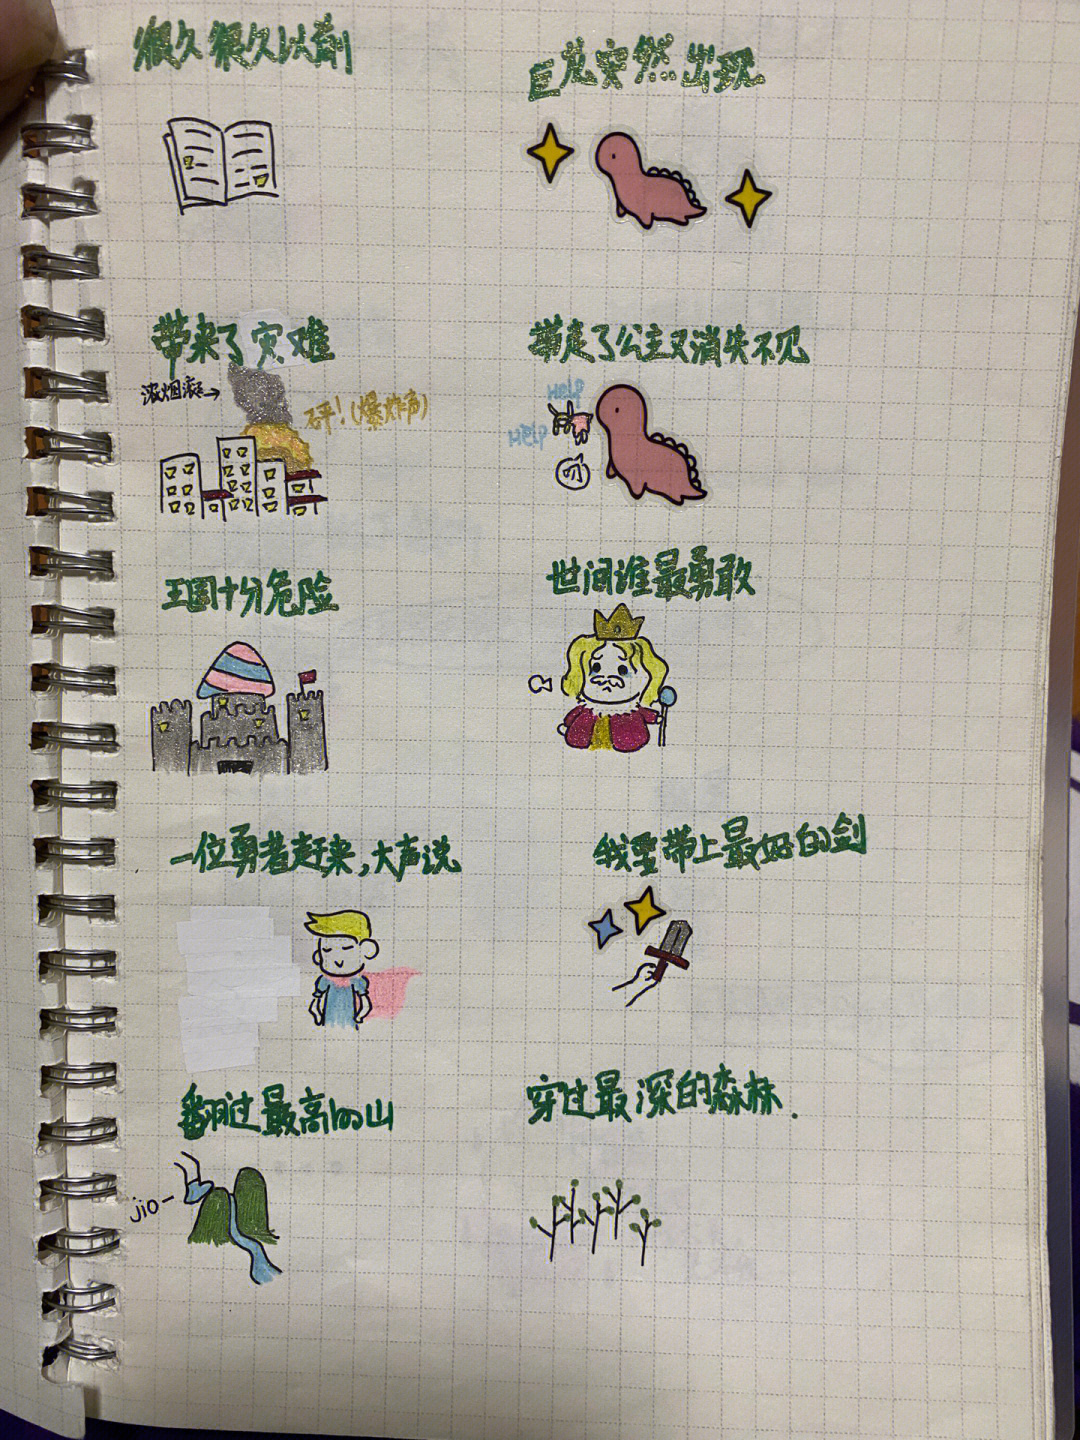 很久很久以前
巨龙突然出现
带来了灾难
浓烟滚滚→
砰!(爆炸声)
带走了公主又消失不见
Help
Help
叼
王国十分危险
世间谁最勇敢
一位勇者赶来,大声说
我要带上最好的剑
翻过最高的山
jio-
穿过最深的森林.